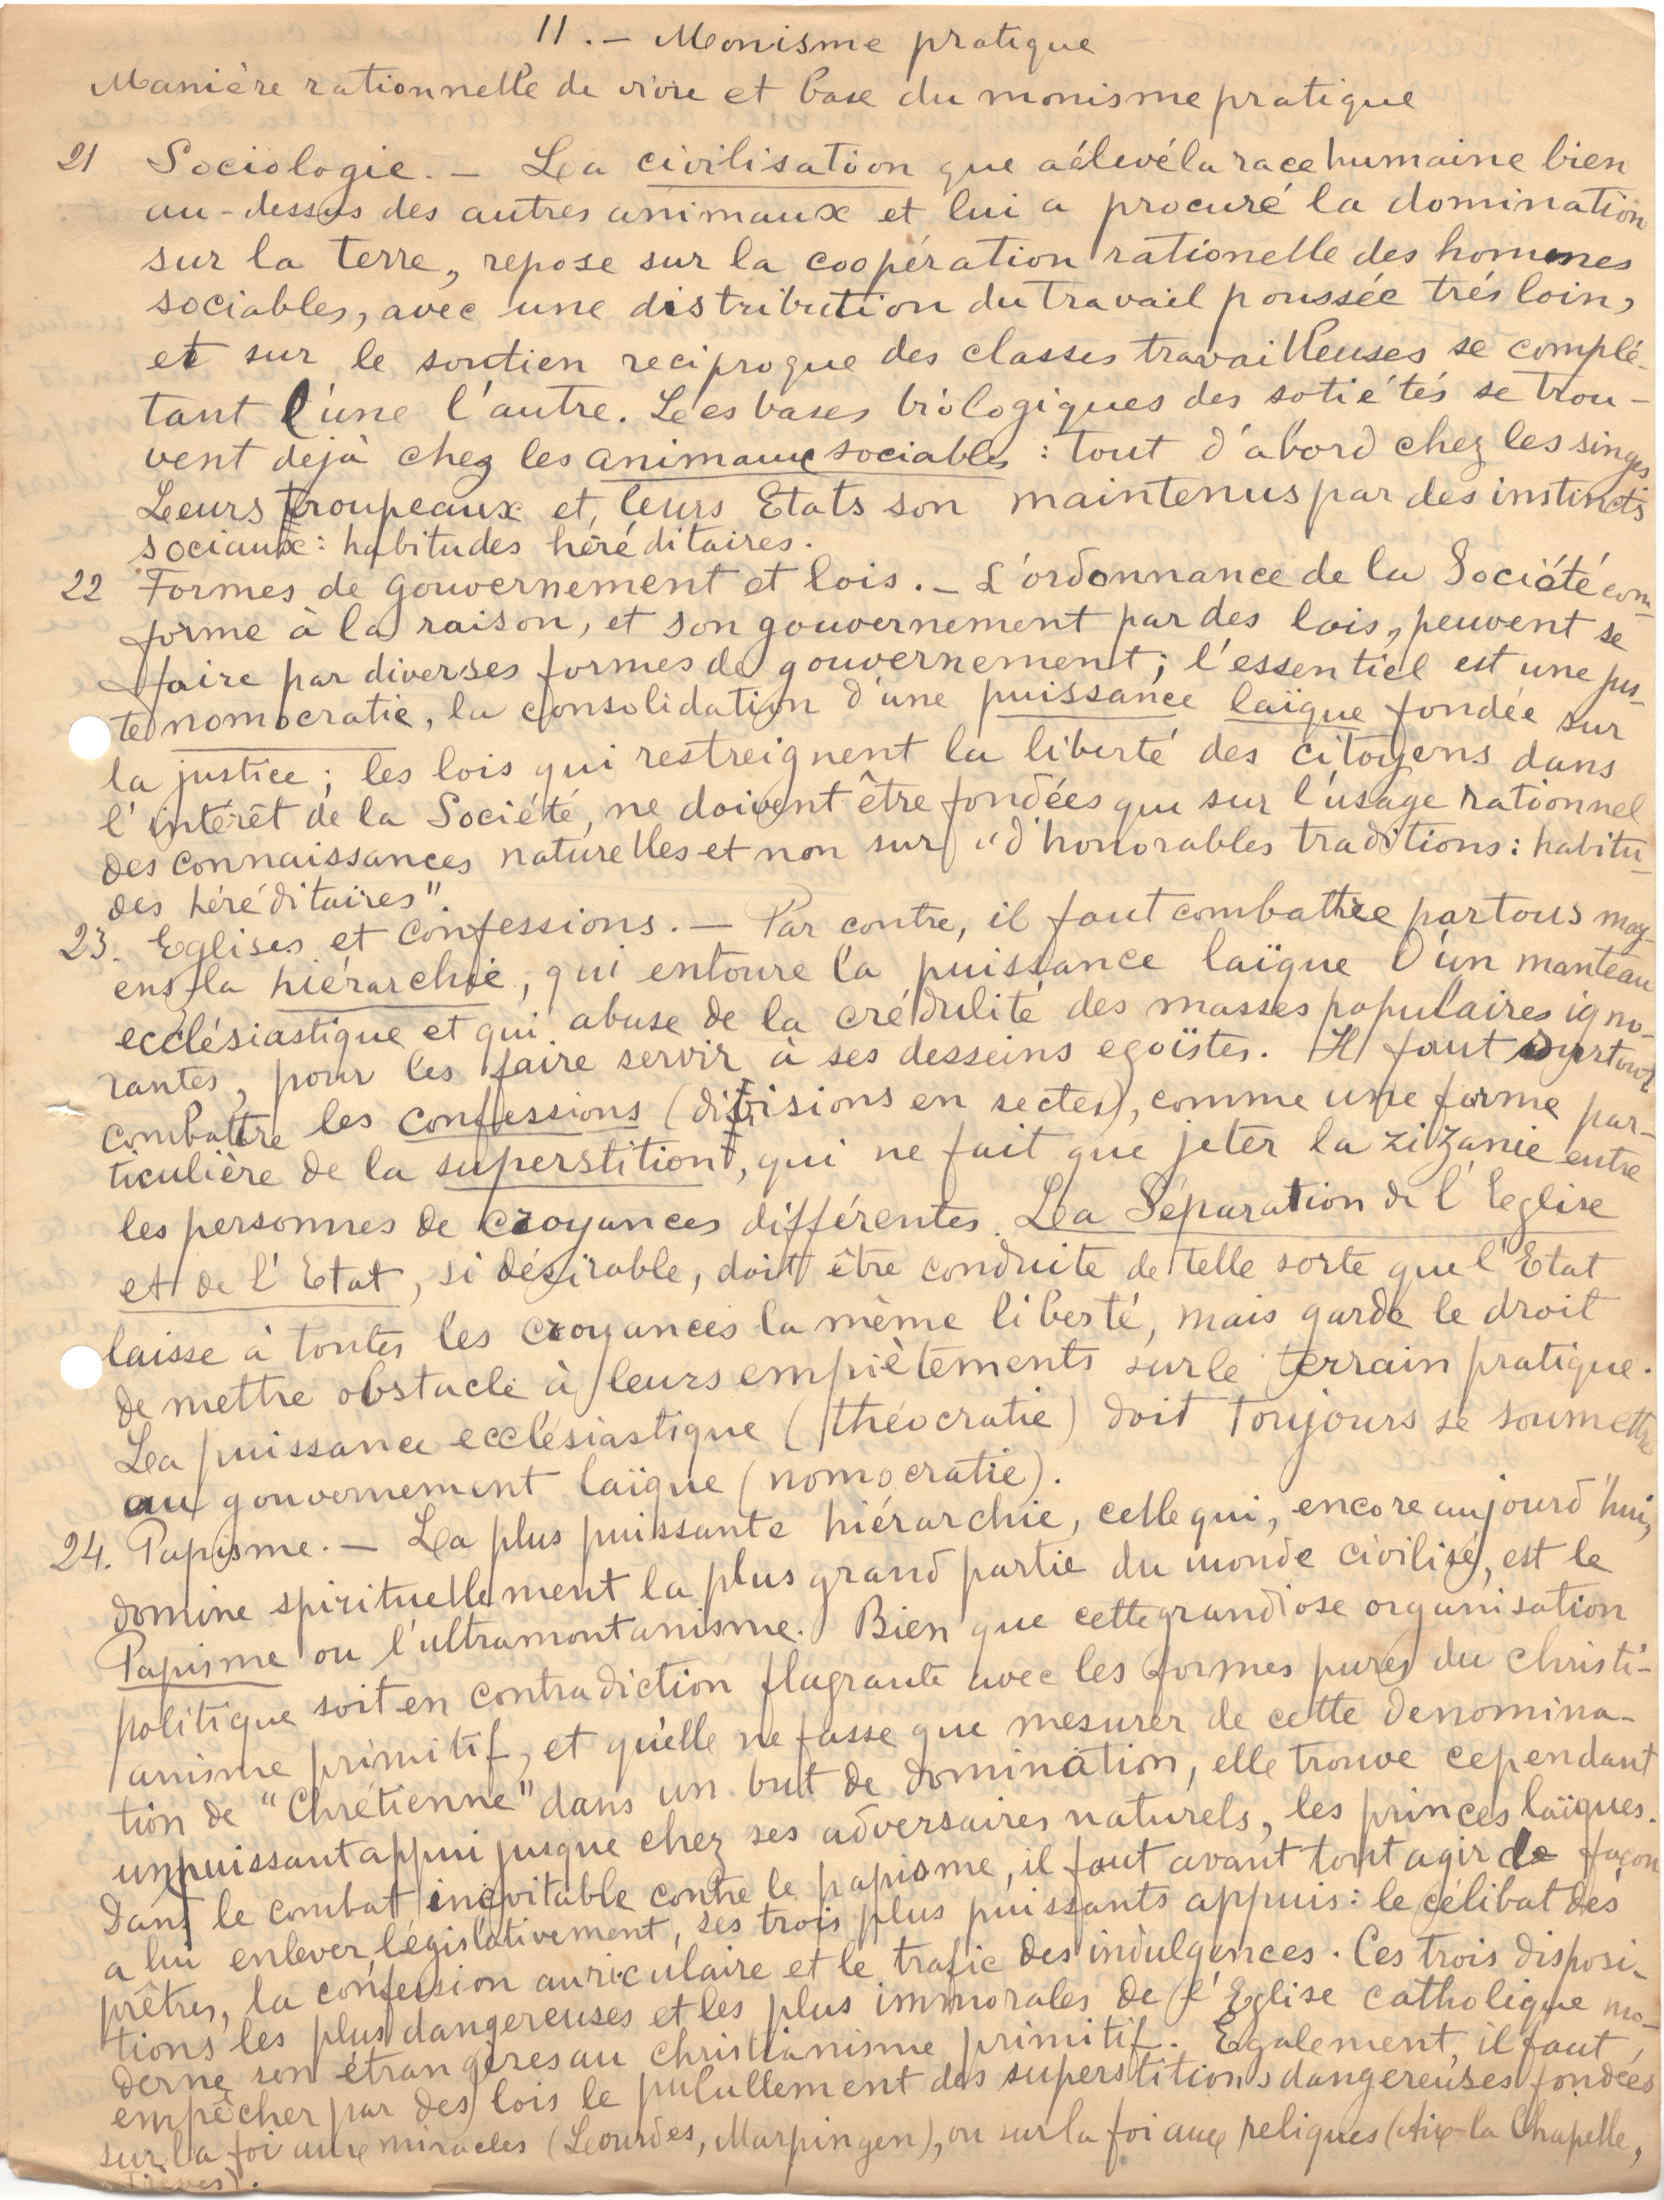 11. – Monisme pratique
Manière rationnelle de vivre et base du monisme pratique
21 Sociologie. – La civilisation que a élevé la race humaine bien
au-dessus des autres animaux et lui a procuré la domination
sur la terre, repose sur la coopération rationelle des hommes
sociables, avec une distribution du travail poussée trés loin,
et sur le soutien reciproque des classes travailleuses se complé-
tant l'une l'autre. Les bases biologiques des sotiétés se trou-
vent dejà chez les animaux sociables : tout d'abord chez les singes
Leurs troupeaux et leurs Etats son maintenus par des instincts
sociaux : habitudes héréditaires.
22 Formes de gouvernement et lois. – L'ordonnance de la Société con-
forme à la raison, et son gouvernement par des lois, peuvent se
faire par diverses formes de gouvernement; l'essentiel est une jus-
te nomocratie, la consolidation d'une puissance laïque fondée sur
la justice; les lois qui restreignent la liberté des citoyens dans
l'intérêt de la Société, ne doivent être fondées que sur l'usage rationnel
des connaissances naturelles et non sur "d'honorables traditions : habitu-
des héréditaires".
23. Eglises et confessions. – Par contre, il faut combattre par tous moy-
ens la hiérarchie, qui entoure la puissance laïque d'un manteau
ecclésiastique et qui abuse de la crédulité des masses populaires igno-
rantes, pour les faire servir à ses desseins egoïstes. Il faut surtout
combattre les confessions (divisions en sectes), comme une forme par-
ticulière de la superstition, qui ne fait que jeter la zizanie entre
les personnes de croyances différentes. La Séparation de l'Eglise
et de l'Etat, si désirable, doit être conduite de telle sorte que l'Etat
laisse à toutes les croyances la même liberté, mais garde le droit
de mettre obstacle à leurs empiètements sur le terrain pratique.
La puissance ecclésiastique (théocratie) doit toujours se soumettre
au gouvernement laïque (nomocratie).
24. Papisme. – La plus puissante hiérarchie, celle qui, encore aujourd'hui,
domine spirituellement la plus grand partie du monde civilisé, est le
Papisme ou l'ultramontanisme. Bien que cette grandiose organisation
politique soit en contradiction flagrante avec les formes pures du christi-
anisme primitif, et qu'elle ne fasse que mesurer de cette denomina-
tion de "Chrétienne" dans un but de domination, elle trouve cependant
un puissant appui jusque chez ses adversaires naturels, les princes laïques.
Dans le combat inévitable contre le papisme, il faut avant tout agir de façon
a lui enlever législativement, ses trois plus puissants appuis : le célibat des
prêtres, la confession auriculaire et le trafic des indulgences. Ces trois disposi-
tions les plus dangereuses et les plus immorales de l'Eglise catholique mo-
derne son étrangères au christianisme primitif. Egalement, il faut,
empêcher par des lois le pulullement des superstitions dangereuses fondées
sur la foi aux miracles (Lourdes, Marpingen), ou sur la foi aux reliques (Aix-la Chapelle,
Trèves).